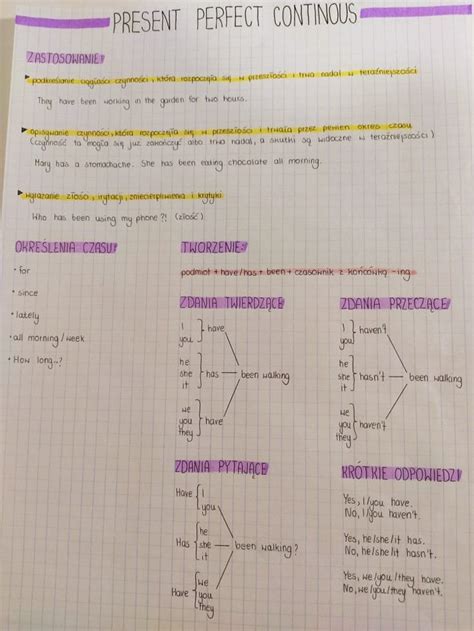 PRESENT PERFECT CONTINOUS
ZASTOSOWANIE:
podkreślanie ciągłości czynności, która rozpoczęła się w przeszłości i trwa nadal w teraźniejszości
They have been working in the garden for two hours.
opisywanie czynności, która rozpoczęła się w przeszłości i trwała przez pewien okres czasu
(czynność ta mogła się już zakończyć albo trwa nadal, a skutki są widoczne w teraźniejszości)
Mary has a stomachache. She has been eating chocolate all morning.
wyrażanie złości, irytacji, zniecierpliwienia i krytyki
Who has been using my phone?! (złość)
OKREŚLENIA CZASU:
• for
• since
• lately
• all morning/week
• How long..?
TWORZENIE:
podmiot + have/has + been + czasownik z końcówką -ing
ZDANIA TWIERDZĄCE
I
you
have
he
she
it
has
we
you
they
have
been walking
ZDANIA PRZECZĄCE
I
you
haven't
he
she
it
hasn't
we
you
they
haven't
been walking
ZDANIA PYTAJĄCE
Have
I
you
Has
he
she
it
Have
we
you
they
been walking?
KRÓTKIE ODPOWIEDZI
Yes, I/you have.
No, I/you haven't.
Yes, he/she/it has.
No, he/she/it hasn't.
Yes, we/you/they have.
No, we/you/they haven't.